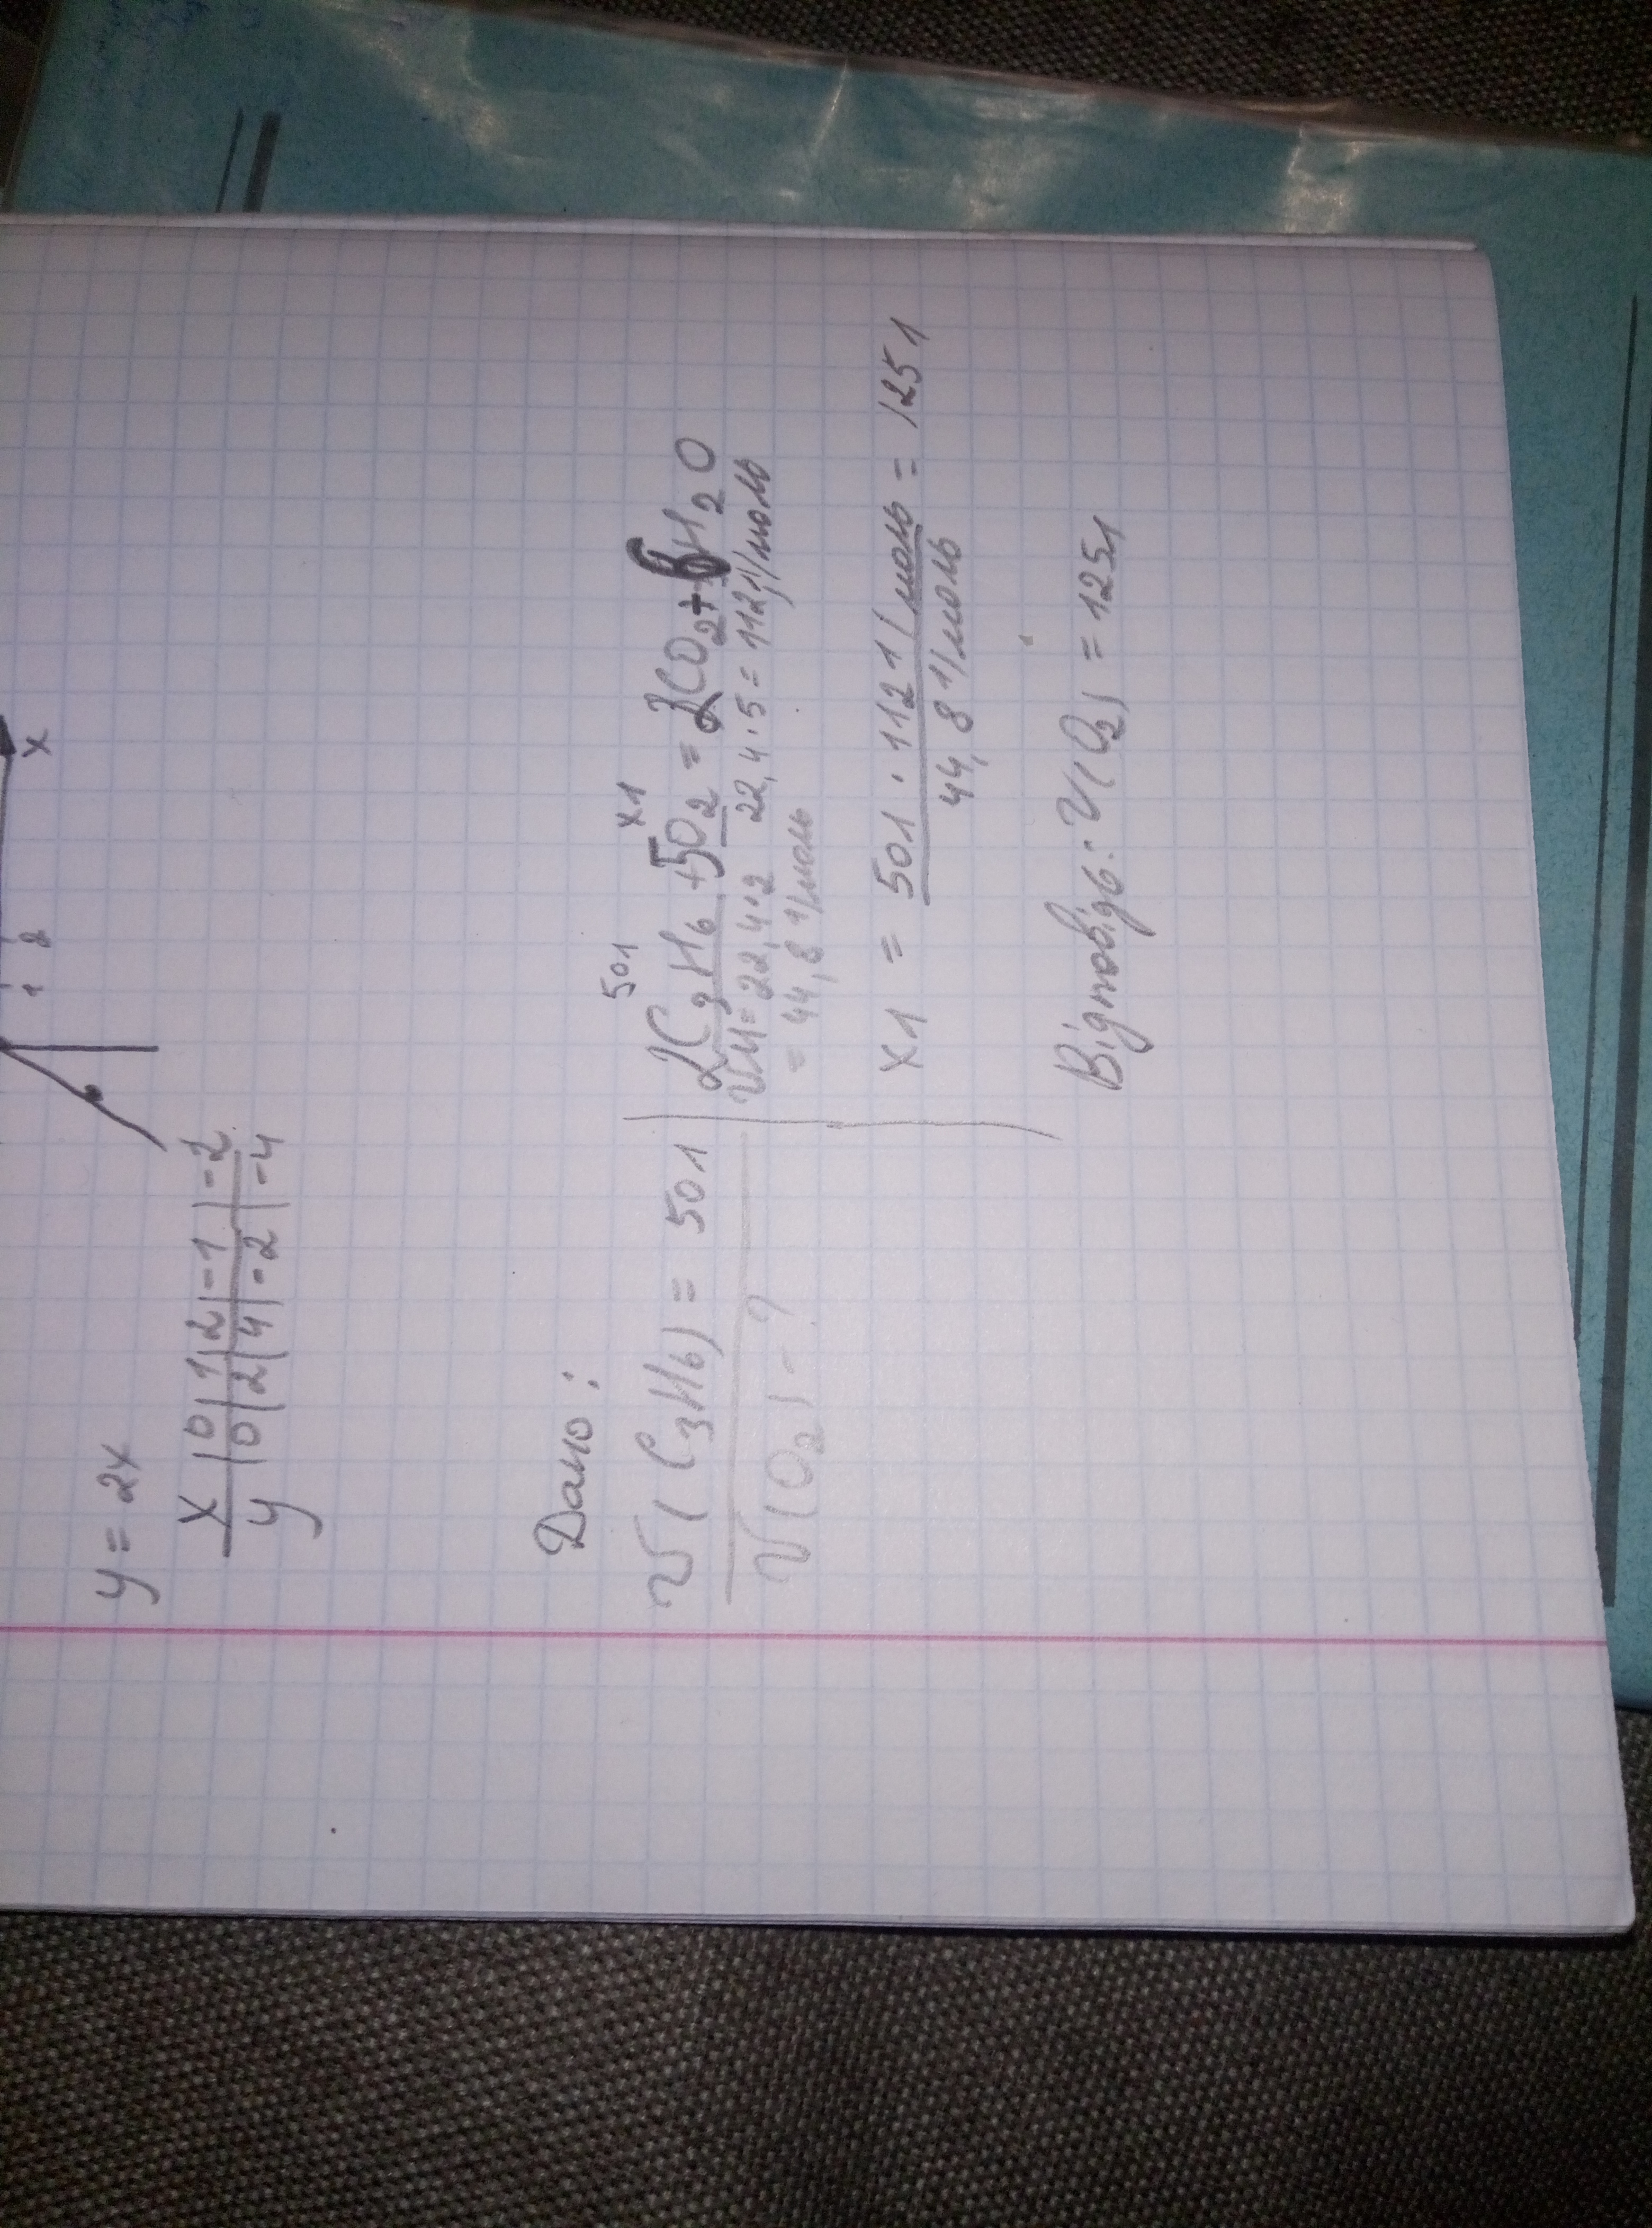 1 2 x
y = 2x
x | 0 | 1 | 2 | -1 | -2
y | 0 | 2 | 4 | -2 | -4
Дано:
V(C3H6) = 50л
V(O2) - ?
50л xл
2C3H6 + 5O2 = 2CO2 + 6H2O
VM = 22,4·2 22,4·5 = 112 л/моль
= 44,8 л/моль
xл = 50л · 112л/моль = 125л
44,8 л/моль
Відповідь: V(O2) = 125л